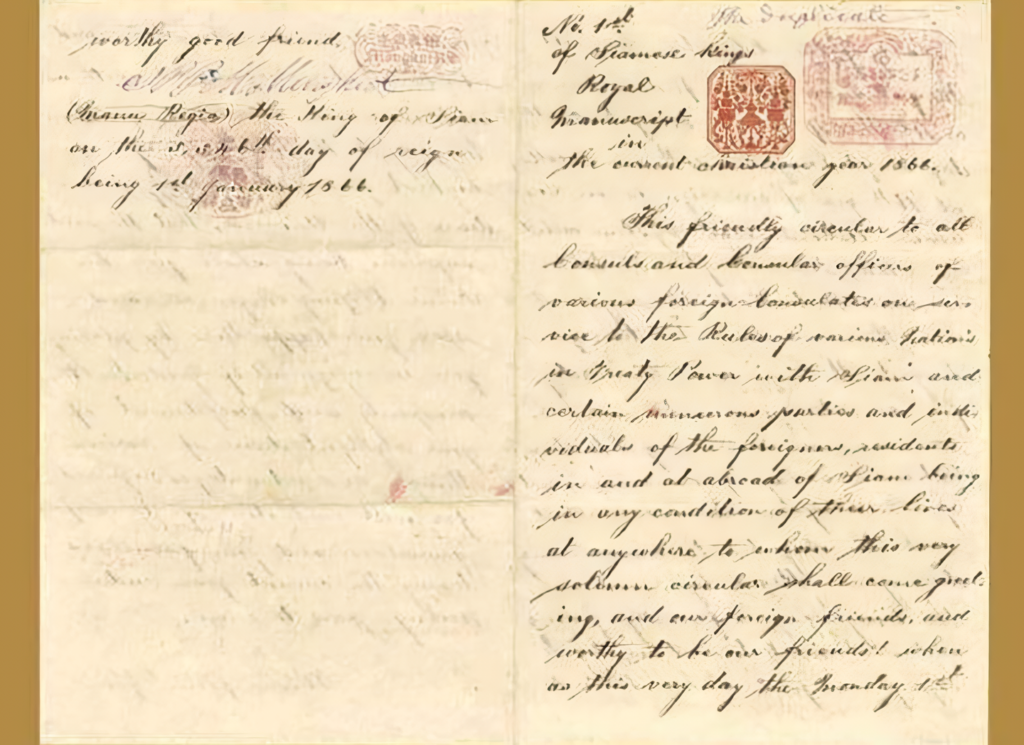 worthy good friend.
(Manu Regia) the King of Siam
on the 5,346th day of reign
being 1st January 1866.
The Duplicate
No. 1st
of Siamese Kings
Royal
Manuscript
in
the current christian year 1866.
This friendly circular to all
Consuls and Consular officers of
various foreign Consulates on ser-
vice to the Rules of various Nations
in Treaty Power with Siam and
certain numerous parties and indi-
viduals of the foreigners, residents
in and at abroad of Siam being
in any condition of their lives
at anywhere to whom this very
solemn circular shall come greet-
ing, and our foreign friends, and
worthy to be our friends! when
as this very day the Monday 1st